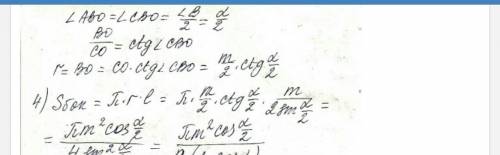 ∠ABO = ∠CBO = ∠B/2 = α/2
BO/CO = ctg∠CBO
r = BO = CO·ctg∠CBO = m/2·ctg α/2
4) Sбок = π·r·l = π·m/2·ctg α/2·m/2sin α/2 =
= πm²cos α/2 / 4sin² α/2 = πm²cos α/2